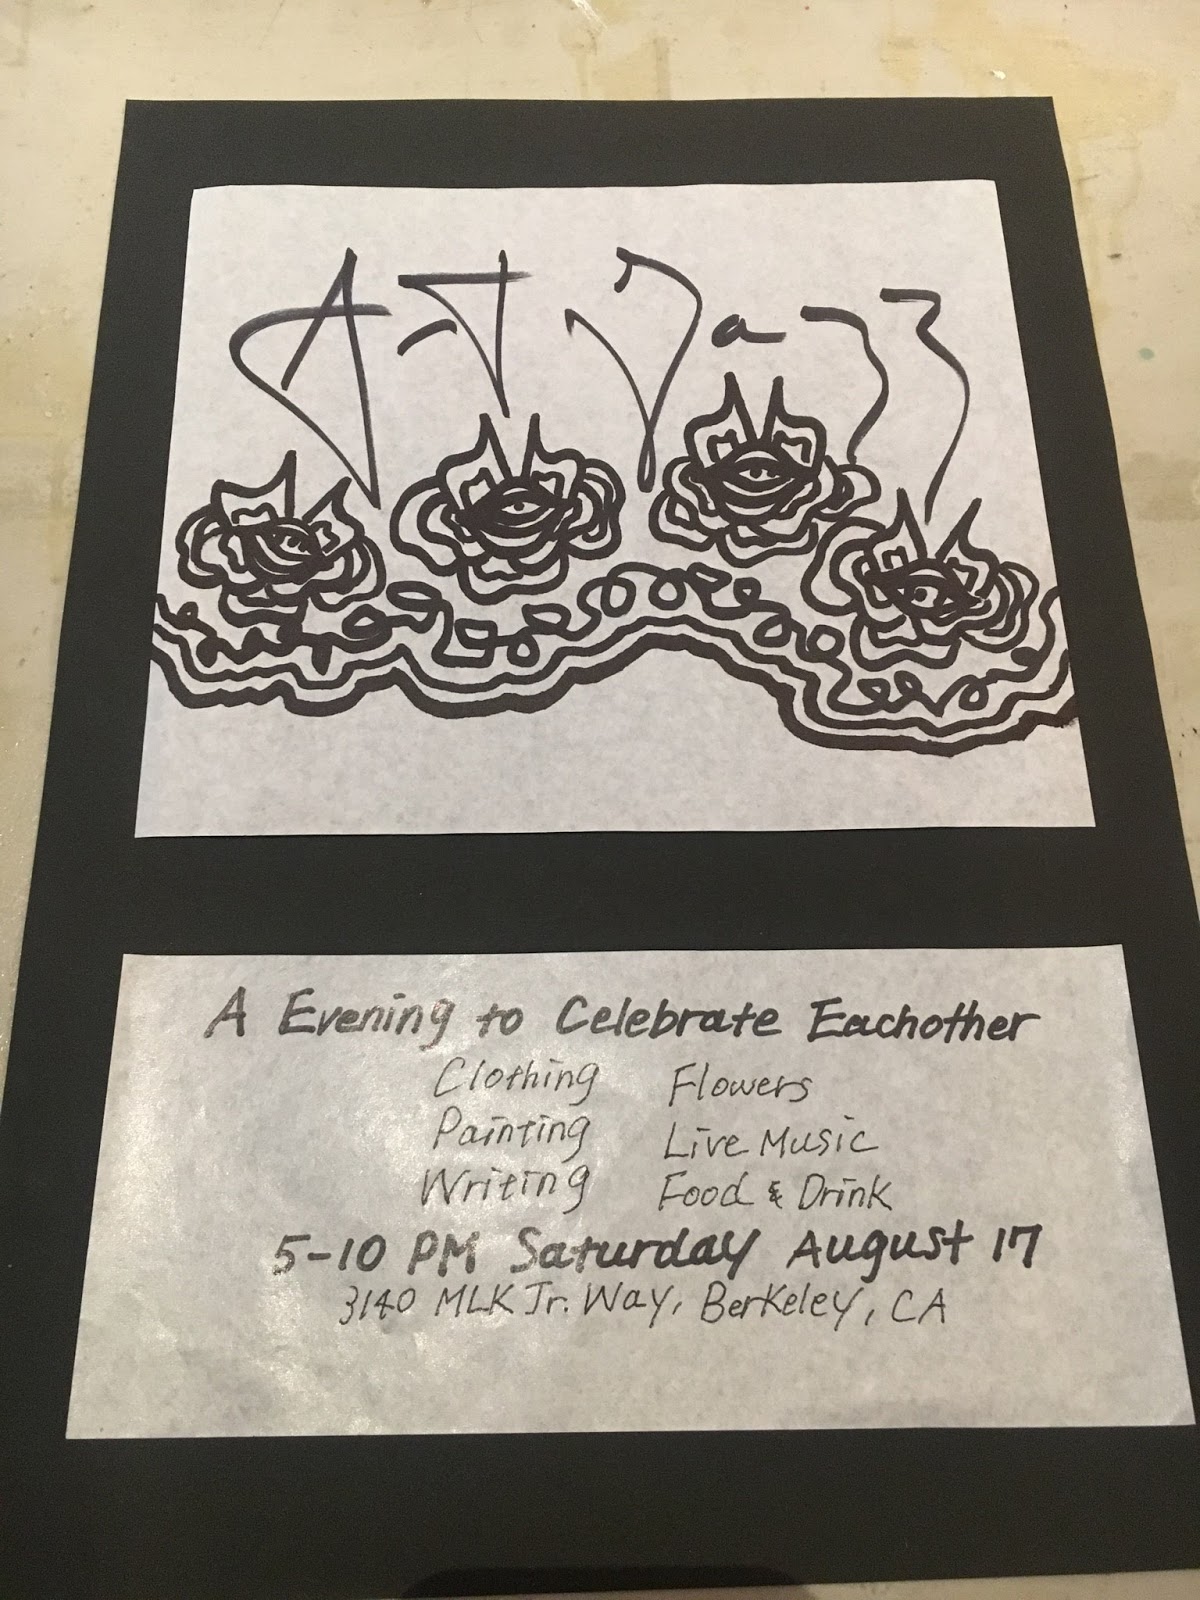 A Evening to Celebrate Eachother
Clothing Flowers
Painting Live Music
Writing Food & Drink
5-10 PM Saturday August 17
3140 MLK Jr. Way, Berkeley, CA